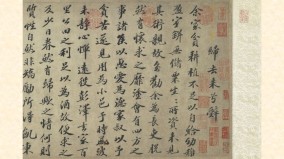 歸去來兮辭
余家貧耕植不足以自給幼稚
盈室缾無儲粟生〻所資未見
其術親故多勸余為長吏脫
然有懷求之靡途會有四方之
事諸侯以惠愛為德家叔以予
貧苦遂見用為小邑于時風波
未靜心憚遠役彭澤去家百
里公田之利足以為酒故便求之
及少日眷然有歸歟之情何則
質性自然非矯勵所得飢凍